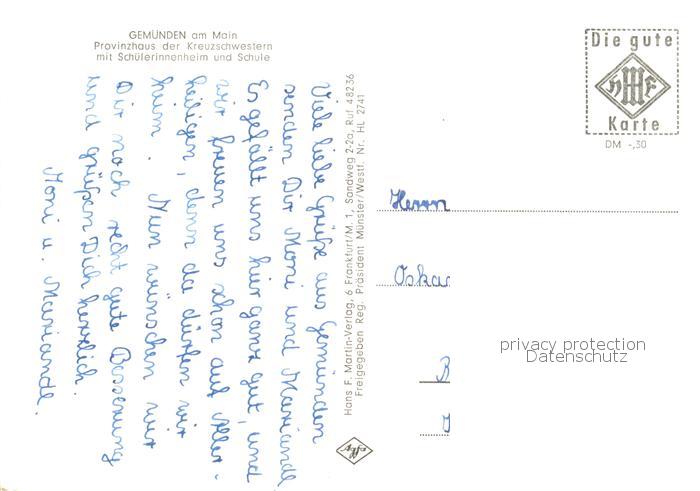 GEMÜNDEN am Main
Provinzhaus der Kreuzschwestern
mit Schülerinnenheim und Schule
Viele liebe Grüße aus Gemünden
senden Dir Moni und Mariande
Es gefällt uns hier ganz gut, und
wir freuen uns schon auf Aller-
heiligen, denn da dürfen wir
heim. Nun wünschen wir
Dir noch recht gute Besserung
und grüßen Dich herzlich.
Moni u. Mariande.
Hans F. Martin-Verlag, 6 Frankfurt/M. 1, Sandweg 2-2a, Ruf 48236
Freigegeben Reg. Präsident Münster/Westf. Nr. HL 2741
Agfa
Die gute
HMF
Karte
DM -,30
Herrn
Oskar
B
privacy protection
Datenschutz